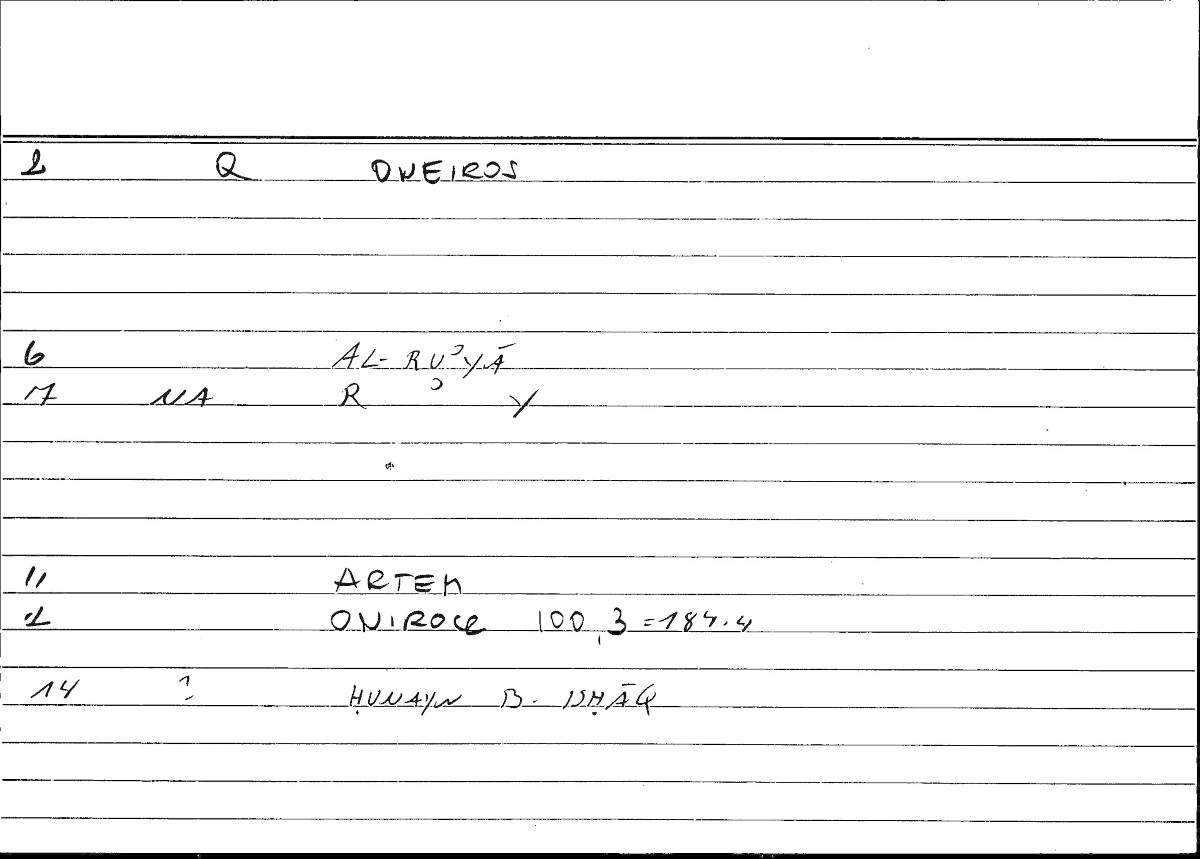 1 Q ONEIROS
6 AL-RUʾYĀ
7 NA R ʾ Y
11 ARTEM
1 ONIROCR 100,3=184.4
14 ? ḤUNAYN B. ISḤĀQ